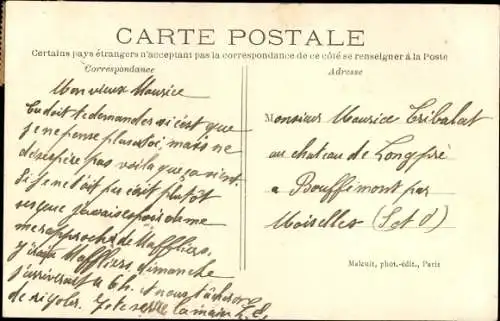 CARTE POSTALE
Certains pays étrangers n'acceptant pas la correspondance de ce côté se renseigner à la Poste
Correspondance
Adresse
Mon vieux Maurice
Tu doit te demander si c'est que
je ne pense plus a toi, mais ne
désespère pas voila que ça vient.
Si je ne t'ai pas écrit plutôt
c'est que j'avais espoir de me
me rapprocher de Maffliers.
j'irai Maffliers dimanche
j'arriverai a 6h. et nous tâcherons
de rigoler. Je te serre la main
Monsieur Maurice Tribalat
au chateau de Longpré
a Bouffémont par
Moiselles (S et O)
Malcuit, phot.-édit., Paris